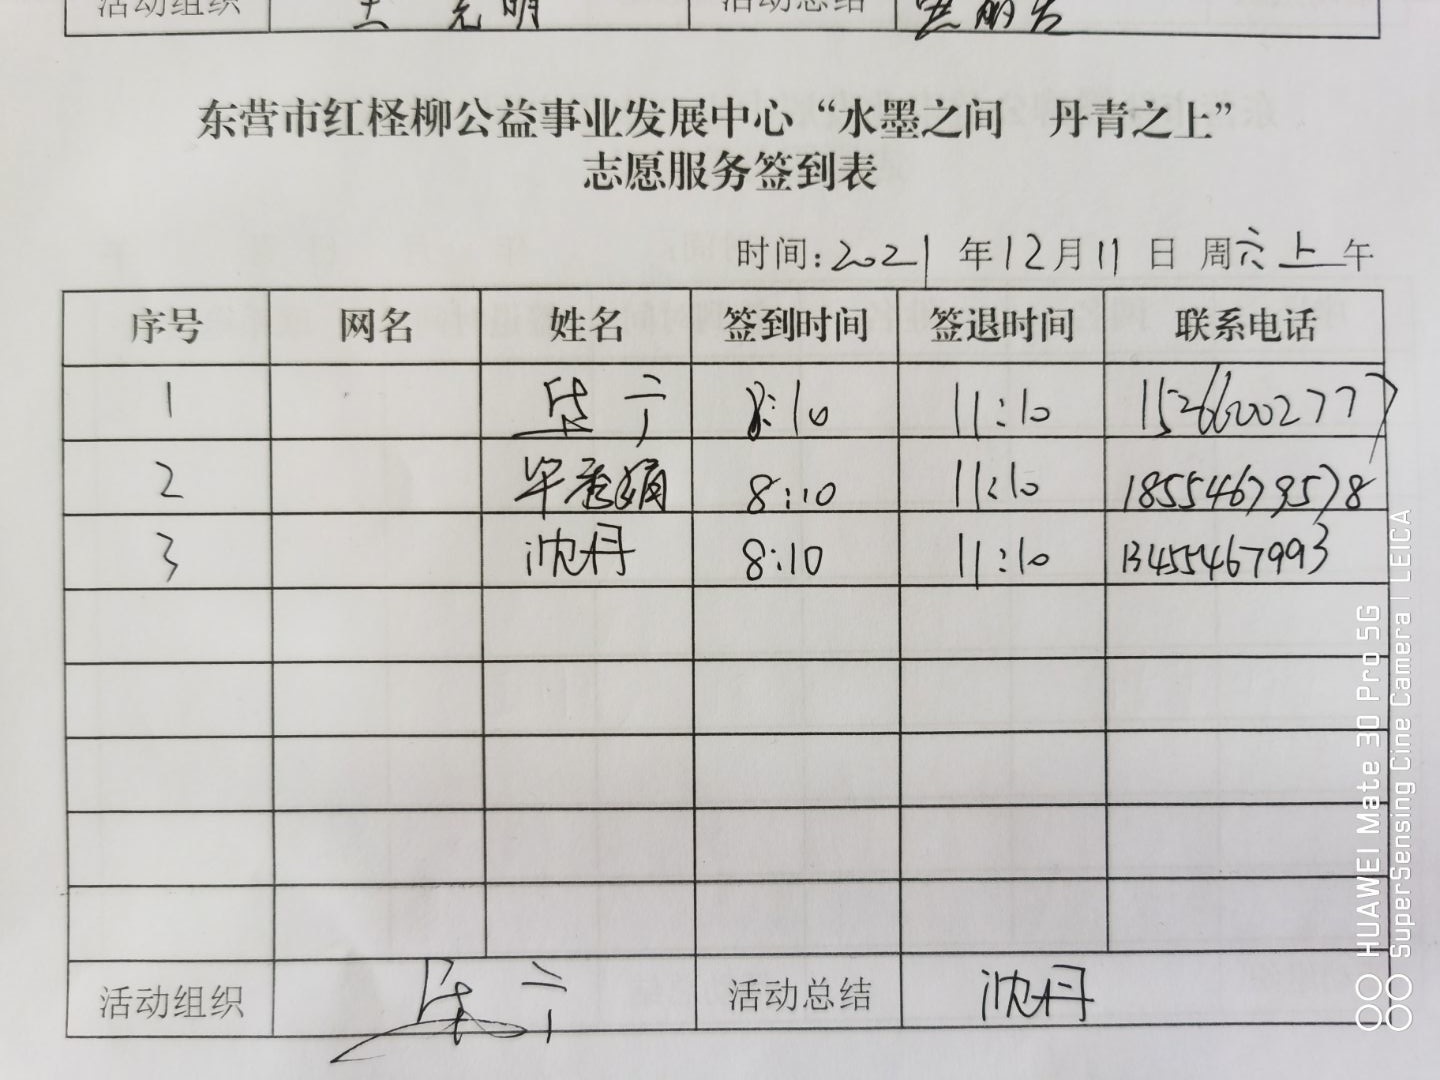 活动组织 王光明 活动总结
东营市红柽柳公益事业发展中心“水墨之间 丹青之上”
志愿服务签到表
时间:2021年12月11日 周六上午
序号 网名 姓名 签到时间 签退时间 联系电话
1 8:10 11:10 15266002777
2 毕秀娟 8:10 11:10 18554679578
3 沈丹 8:10 11:10 13455467993
活动组织 活动总结 沈丹
HUAWEI Mate 30 Pro 5G
SuperSensing Cine Camera | LEICA